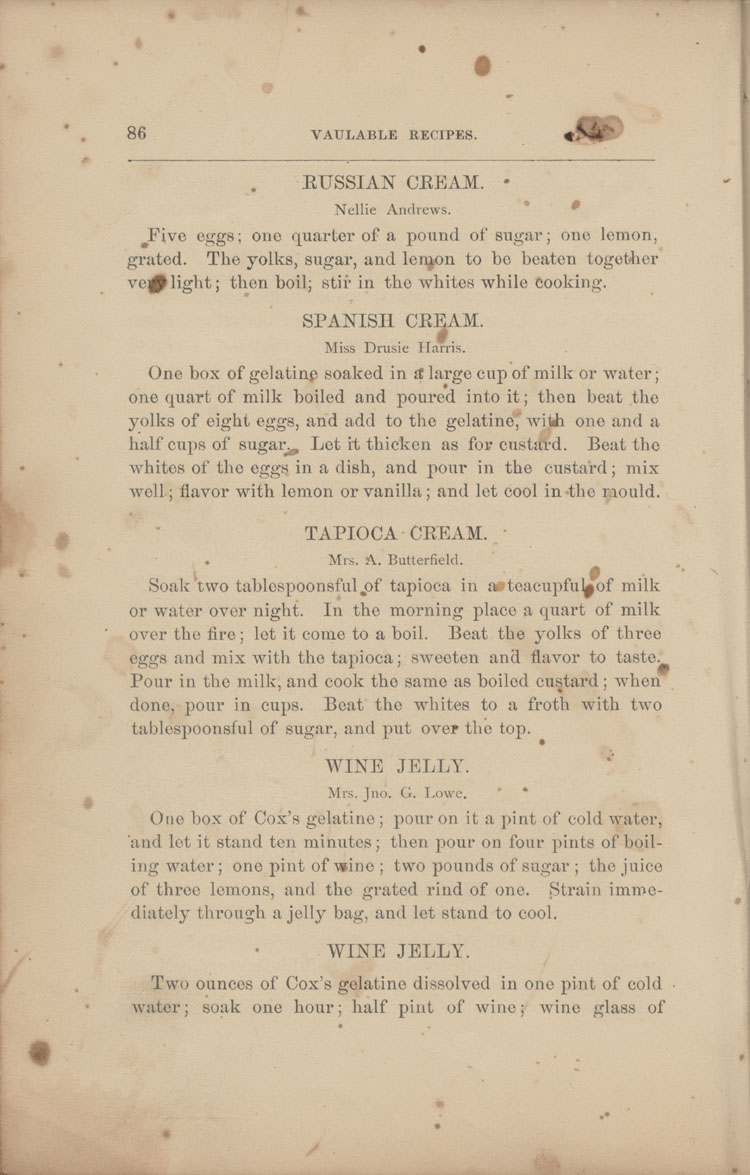 86
VAULABLE RECIPES.
RUSSIAN CREAM.
Nellie Andrews.
Five eggs; one quarter of a pound of sugar; one lemon,
grated. The yolks, sugar, and lemon to be beaten together
very light; then boil; stir in the whites while cooking.
SPANISH CREAM.
Miss Drusie Harris.
One box of gelatine soaked in a large cup of milk or water;
one quart of milk boiled and poured into it; then beat the
yolks of eight eggs, and add to the gelatine, with one and a
half cups of sugar. Let it thicken as for custard. Beat the
whites of the eggs in a dish, and pour in the custard; mix
well; flavor with lemon or vanilla; and let cool in the mould.
TAPIOCA CREAM.
Mrs. A. Butterfield.
Soak two tablespoonsful of tapioca in a teacupful of milk
or water over night. In the morning place a quart of milk
over the fire; let it come to a boil. Beat the yolks of three
eggs and mix with the tapioca; sweeten and flavor to taste.
Pour in the milk, and cook the same as boiled custard; when
done, pour in cups. Beat the whites to a froth with two
tablespoonsful of sugar, and put over the top.
WINE JELLY.
Mrs. Jno. G. Lowe.
One box of Cox's gelatine; pour on it a pint of cold water,
and let it stand ten minutes; then pour on four pints of boil-
ing water; one pint of wine; two pounds of sugar; the juice
of three lemons, and the grated rind of one. Strain imme-
diately through a jelly bag, and let stand to cool.
WINE JELLY.
Two ounces of Cox's gelatine dissolved in one pint of cold
water; soak one hour; half pint of wine; wine glass of